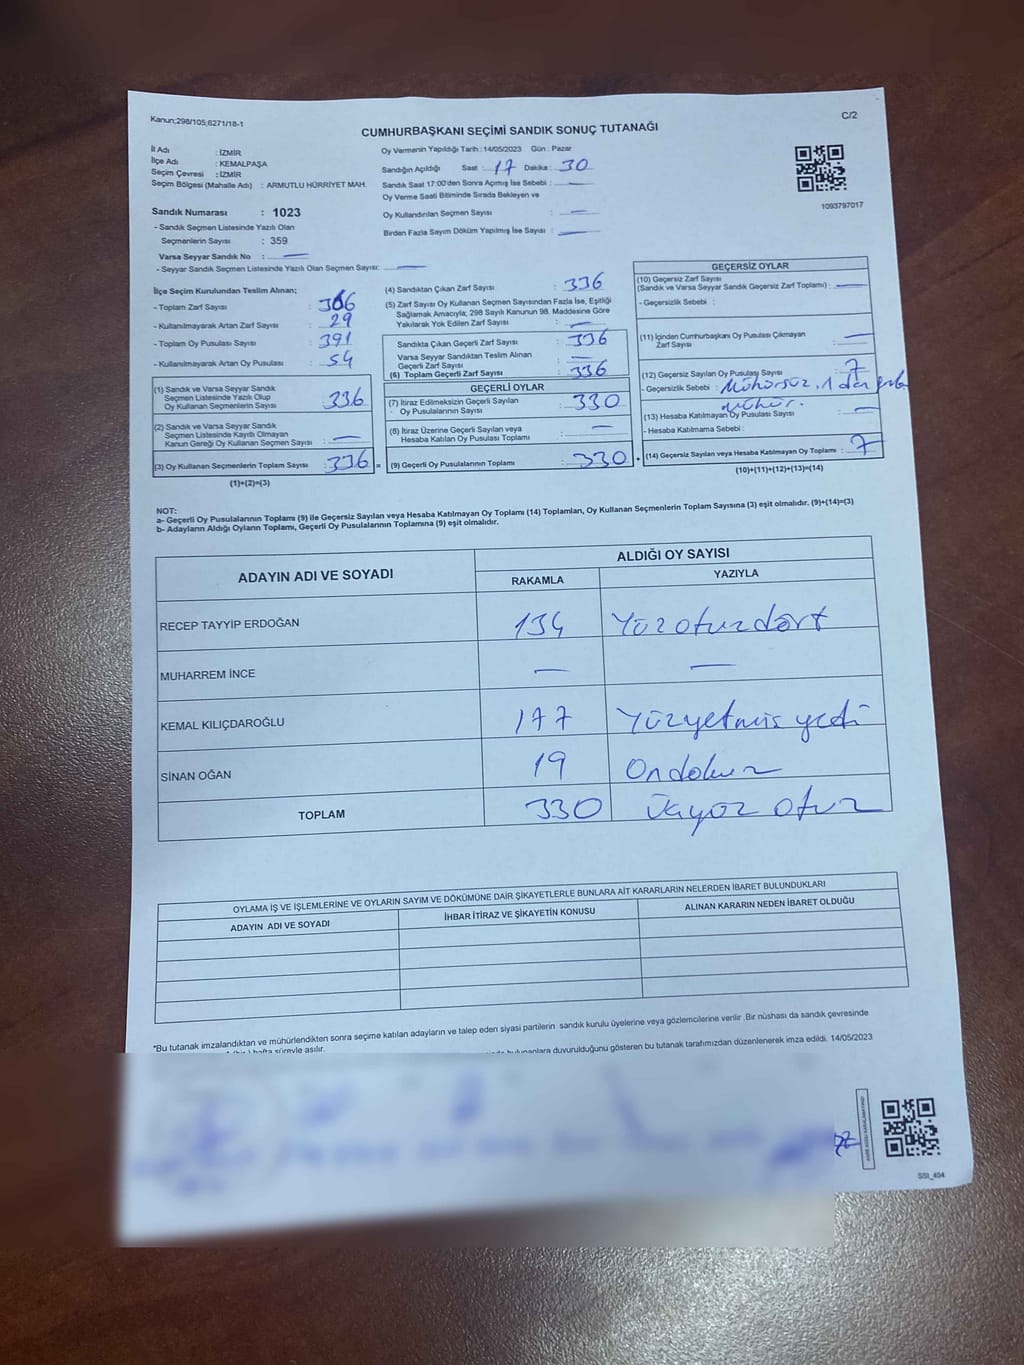 Kanun;298/105;6271/18-1
C/2
CUMHURBAŞKANI SEÇİMİ SANDIK SONUÇ TUTANAĞI
İl Adı : İZMİR
İlçe Adı : KEMALPAŞA
Seçim Çevresi : İZMİR
Seçim Bölgesi (Mahalle Adı) : ARMUTLU HÜRRİYET MAH.
Sandık Numarası : 1023
- Sandık Seçmen Listesinde Yazılı Olan
Seçmenlerin Sayısı : 359
Varsa Seyyar Sandık No : —
- Seyyar Sandık Seçmen Listesinde Yazılı Olan Seçmen Sayısı: —
Oy Vermenin Yapıldığı Tarih : 14/05/2023 Gün : Pazar
Sandığın Açıldığı Saat : 17 Dakika : 30
Sandık Saat 17:00'den Sonra Açımış İse Sebebi : —
Oy Verme Saati Bitiminde Sırada Bekleyen ve
Oy Kullandırılan Seçmen Sayısı : —
Birden Fazla Sayım Döküm Yapılmış İse Sayısı : —
1093797017
İlçe Seçim Kurulundan Teslim Alınan;
- Toplam Zarf Sayısı : 366
- Kullanılmayarak Artan Zarf Sayısı : 29
- Toplam Oy Pusulası Sayısı : 391
- Kullanılmayarak Artan Oy Pusulası : 54
(1) Sandık ve Varsa Seyyar Sandık
Seçmen Listesinde Yazılı Olup
Oy Kullanan Seçmenlerin Sayısı : 336
(2) Sandık ve Varsa Seyyar Sandık
Seçmen Listesinde Kayıtlı Olmayan
Kanun Gereği Oy Kullanan Seçmen Sayısı : —
(3) Oy Kullanan Seçmenlerin Toplam Sayısı : 336 =
(1)+(2)=(3)
(4) Sandıktan Çıkan Zarf Sayısı : 336
(5) Zarf Sayısı Oy Kullanan Seçmen Sayısından Fazla İse, Eşitliği
Sağlamak Amacıyla; 298 Sayılı Kanunun 98. Maddesine Göre
Yakılarak Yok Edilen Zarf Sayısı : —
Sandıkta Çıkan Geçerli Zarf Sayısı : 336
Varsa Seyyar Sandıktan Teslim Alınan
Geçerli Zarf Sayısı : —
(6) Toplam Geçerli Zarf Sayısı : 336
GEÇERLİ OYLAR
(7) İtiraz Edilmeksizin Geçerli Sayılan
Oy Pusulalarının Sayısı : 330
(8) İtiraz Üzerine Geçerli Sayılan veya
Hesaba Katılan Oy Pusulası Toplamı : —
(9) Geçerli Oy Pusulalarının Toplamı : 330 +
GEÇERSİZ OYLAR
(10) Geçersiz Zarf Sayısı
(Sandık ve Varsa Seyyar Sandık Geçersiz Zarf Toplamı) : —
- Geçersizlik Sebebi :
(11) İçinden Cumhurbaşkanı Oy Pusulası Çıkmayan
Zarf Sayısı : —
(12) Geçersiz Sayılan Oy Pusulası Sayısı : 7
- Geçersizlik Sebebi : Mühürsüz, 1 den
mühür.
(13) Hesaba Katılmayan Oy Pusulası Sayısı : —
- Hesaba Katılmama Sebebi :
(14) Geçersiz Sayılan veya Hesaba Katılmayan Oy Toplamı : 7
(10)+(11)+(12)+(13)=(14)
NOT:
a- Geçerli Oy Pusulalarının Toplamı (9) ile Geçersiz Sayılan veya Hesaba Katılmayan Oy Toplamı (14) Toplamları, Oy Kullanan Seçmenlerin Toplam Sayısına (3) eşit olmalıdır. (9)+(14)=(3)
b- Adayların Aldığı Oyların Toplamı, Geçerli Oy Pusulalarının Toplamına (9) eşit olmalıdır.
ADAYIN ADI VE SOYADI
ALDIĞI OY SAYISI
RAKAMLA YAZIYLA
RECEP TAYYİP ERDOĞAN 134 Yüzotuzdört
MUHARREM İNCE — —
KEMAL KILIÇDAROĞLU 177 Yüzyetmiş yedi
SİNAN OĞAN 19 Ondokuz
TOPLAM 330 Üçyüz otuz
OYLAMA İŞ VE İŞLEMLERİNE VE OYLARIN SAYIM VE DÖKÜMÜNE DAİR ŞİKAYETLERLE BUNLARA AİT KARARLARIN NELERDEN İBARET BULUNDUKLARI
ADAYIN ADI VE SOYADI İHBAR İTİRAZ VE ŞİKAYETİN KONUSU ALINAN KARARIN NEDEN İBARET OLDUĞU
*Bu tutanak imzalandıktan ve mühürlendikten sonra seçime katılan adayların ve talep eden siyasi partilerin sandık kurulu üyelerine veya gözlemcilerine verilir .Bir nüshası da sandık çevresinde
hafta süreyle asılır.
bulunanlara duyurulduğunu gösteren bu tutanak tarafımızdan düzenlenerek imza edildi. 14/05/2023
SSI_404